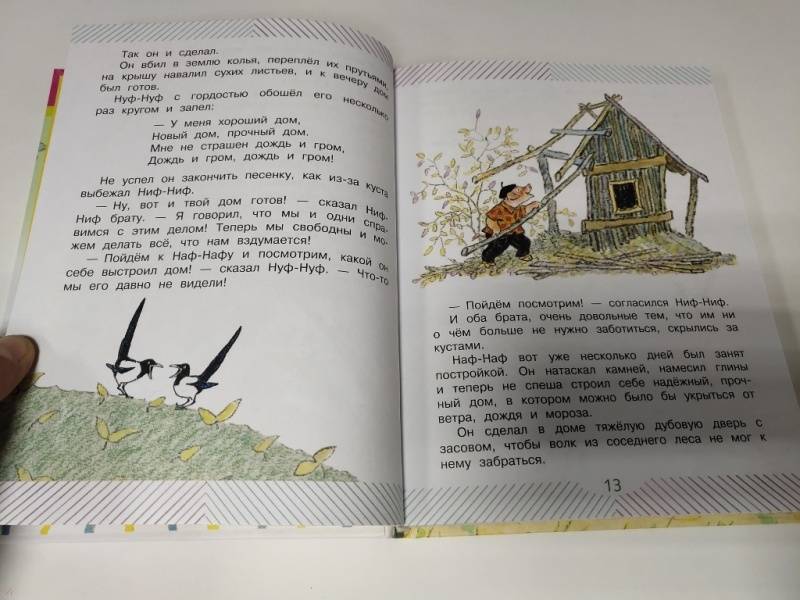 Так он и сделал.
Он вбил в землю колья, переплёл их прутьями,
на крышу навалил сухих листьев, и к вечеру дом
был готов.
Нуф-Нуф с гордостью обошёл его несколько
раз кругом и запел:
— У меня хороший дом,
Новый дом, прочный дом.
Мне не страшен дождь и гром,
Дождь и гром, дождь и гром!
Не успел он закончить песенку, как из-за куста
выбежал Ниф-Ниф.
— Ну, вот и твой дом готов! — сказал Ниф-
Ниф брату. — Я говорил, что мы и одни спра-
вимся с этим делом! Теперь мы свободны и мо-
жем делать всё, что нам вздумается!
— Пойдём к Наф-Нафу и посмотрим, какой он
себе выстроил дом! — сказал Нуф-Нуф. — Что-то
мы его давно не видели!
— Пойдём посмотрим! — согласился Ниф-Ниф.
И оба брата, очень довольные тем, что им ни
о чём больше не нужно заботиться, скрылись за
кустами.
Наф-Наф вот уже несколько дней был занят
постройкой. Он натаскал камней, намесил глины
и теперь не спеша строил себе надёжный, проч-
ный дом, в котором можно было бы укрыться от
ветра, дождя и мороза.
Он сделал в доме тяжёлую дубовую дверь с
засовом, чтобы волк из соседнего леса не мог к
нему забраться.
13